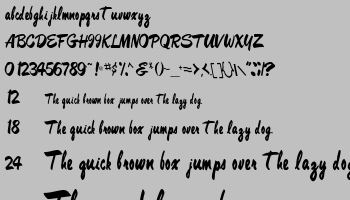 abcdefghijklmnopqrsTuvwxyz
ABCDEFGHIJKLMNOPQRSTUVWXYZ
0123456789
12 The quick brown box jumps over The lazy dog.
18 The quick brown box jumps over The lazy dog.
24 The quick brown box jumps over The lazy dog